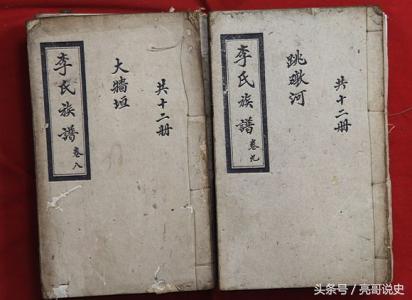 李氏族譜 卷八
大牆垣
共十二冊
李氏族譜 卷九
跳墩河
共十二冊
头条号 / 亮哥说史